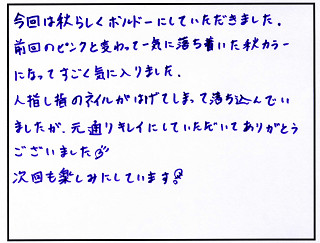 今回は秋らしくボルドーにしていただきました。
前回のピンクと変わって一気に落ち着いた秋カラー
になってすごく気に入りました。
人指し指のネイルがはげてしまって落ち込んでい
ましたが、元通りキレイにしていただいてありがとう
ございました
次回も楽しみにしています